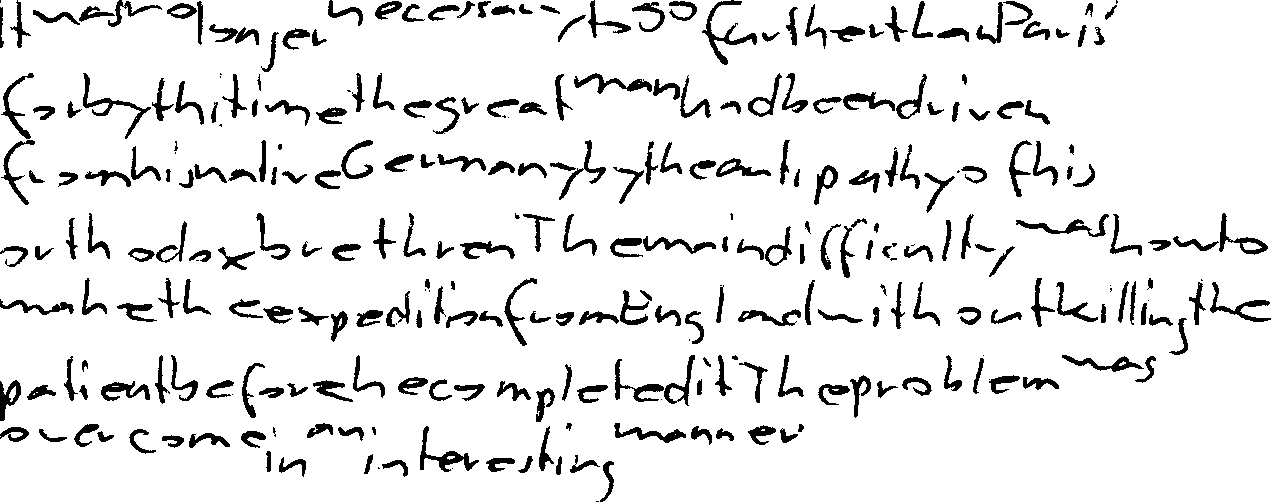 It was no longer necessary to go further than Paris
for by thi time the great man had been driven
from his native Germany by the antipathy of his
orthodox brethren The main difficulty was how to
make the expedition from England without killing the
patient before he completed it The problem was
overcome in an interesting manner